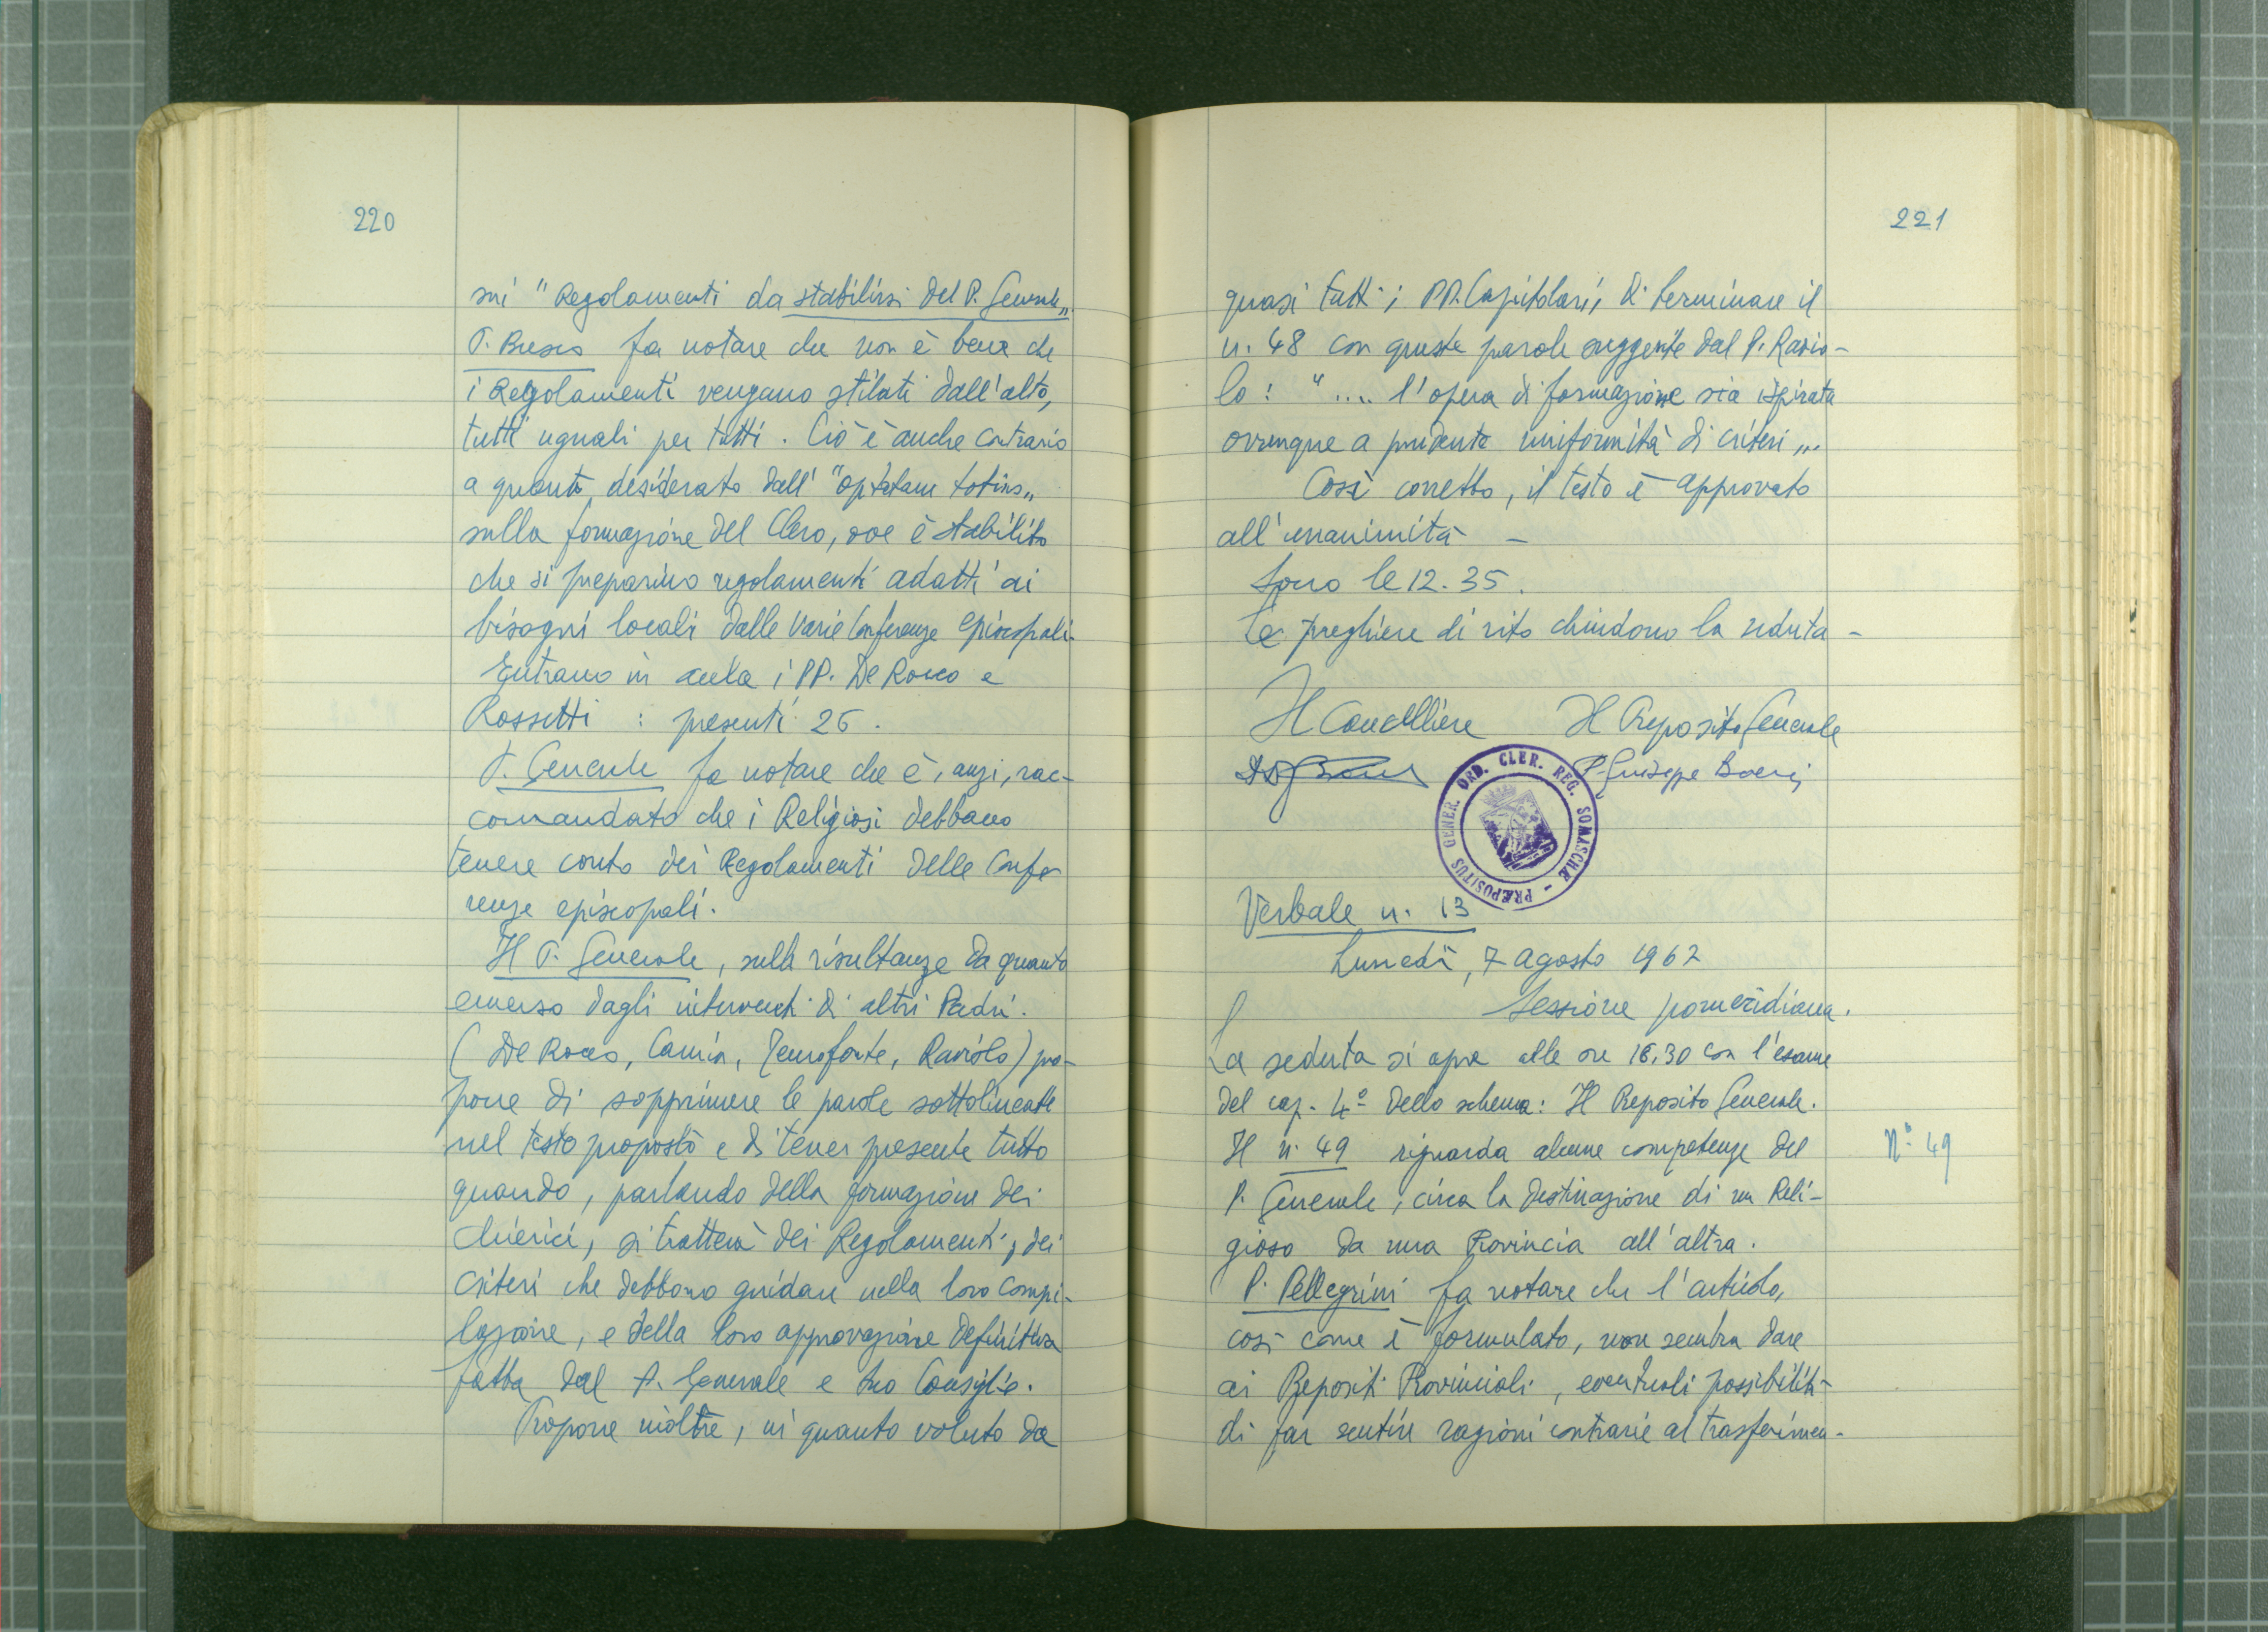 220
sui "Regolamenti da stabilirsi del P. Generale„
P. Bresco fa notare che non è bene che
i Regolamenti vengano stilati dall'alto,
tutti uguali per tutti. Ciò è anche contrario
a quanto desiderato dall' "optatam totius„
sulla formazione del Clero, ove è stabilito
che si preparino regolamenti adatti ai
bisogni locali dalle varie Conferenze episcopali.
Entrano in aula i PP. De Rocco e
Rossetti : presenti 26.
P. Generale fa notare che è, anzi, rac-
comandato che i Religiosi debbano
tenere conto dei Regolamenti delle Confe
renze episcopali.
Il P. Generale, sulle risultanze da quanto
emerso dagli interventi di altri Padri.
(De Rocco, Camia, Temofonte, Raviolo) pro-
pone di sopprimere le parole sottolineate
nel testo proposto e di tener presente tutto
quando, parlando della formazione dei
chierici, si tratterà dei Regolamenti, dei
criteri che debbono guidare nella loro compi-
lazione, e della loro approvazione definitiva
fatta dal P. Generale e suo Consiglio.
Propone inoltre, in quanto voluto da
221
quasi tutti i PP. Capitolari, di terminare il
n. 48 con queste parole suggerite dal P. Ravio-
lo : ".... l'opera di formazione sia ispirata
ovunque a prudente uniformità di criteri„.
Così corretto, il testo è approvato
all'unanimità –
Sono le 12.35.
Le preghiere di rito chiudono la seduta –
Il Cancelliere Il Preposito Generale
P. Giuseppe Boeri
PRÆPOSITUS GENER. ORD. CLER. REG. SOMASCHÆ –
Verbale n. 13
Lunedì, 7 agosto 1967
Sessione pomeridiana.
La seduta si apre alle ore 16,30 con l'esame
del cap. 4º dello schema: Il Preposito Generale.
Il n. 49 riguarda alcune competenze del
Nº 49
P. Generale, circa la destinazione di un Reli-
gioso da una Provincia all'altra.
P. Pellegrini fa notare che l'articolo,
così come è formulato, non sembra dare
ai Prepositi Provinciali, eventuali possibilità
di far sentire ragioni contrarie al trasferimen-